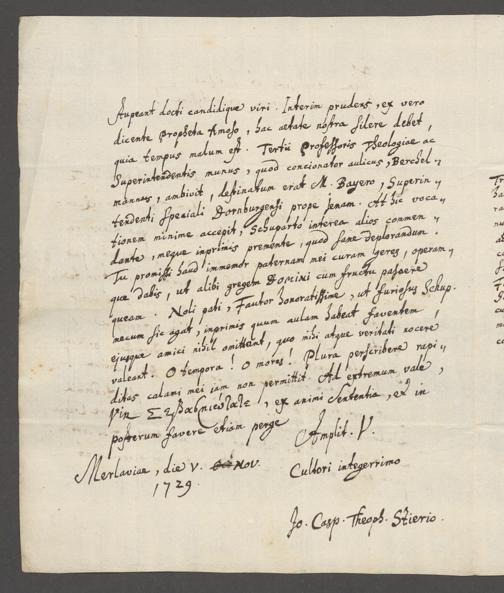 stupeant docti candidique viri. Interim prudens, ex vero
dicente propheta Amoso, hac aetate nostra silere debet,
quia tempus malum est. Tertii Professoris Theologiae ac
Superintendentis munus, quod concionator aulicus, Berchel-
mannus, ambivit, destinatum erat M. Bayero, Superin-
tendenti speciali Dornburgensi prope Jenam. At hic voca-
tionem minime accepit, Schuparto interea alios commen-
dante, meque inprimis premente, quod sane deplorandum.
Tu promissi haud immemor paternam mei curam geres, operam-
que dabis, ut alibi gregem Domini cum fructu pascere
queam. Noli pati, Fautor honoratissime, ut furiosus Schup.
mecum sic agat, inprimis quum aulam habeat faventem,
ejusque amici nihil omittant, quo mihi atque veritati nocere
valeant. O tempora! O mores! Plura perscribere rapi-
ditas calami mei jam non permittit. Ad extremum vale,
Vir Σεβασμιώτατε, ex animi sententia, et in
posterum favere etiam perge
Amplit. V.
Merlaviae, die V. Nov.
1729.
Cultori integerrimo
Jo. Casp. Theoph. Stierio.